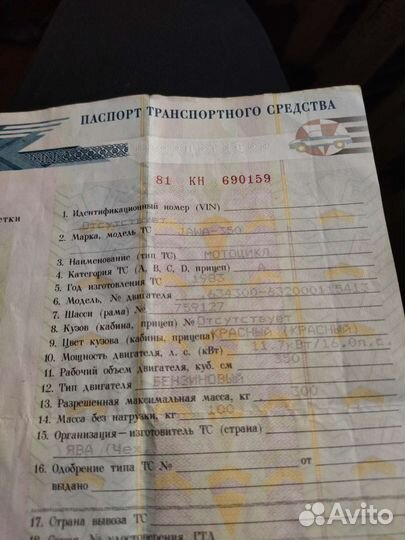 ПАСПОРТ ТРАНСПОРТНОГО СРЕДСТВА
81 КН 690159
етки
1. Идентификационный номер (VIN)
Отсутствует
2. Марка, модель ТС JAWA-350
3. Наименование (тип ТС) МОТОЦИКЛ
4. Категория ТС (А, В, С, D, прицеп) А
5. Год изготовления ТС 1983
6. Модель, № двигателя 634300-632000115413
7. Шасси (рама) № 759127
8. Кузов (кабина, прицеп) № Отсутствует
9. Цвет кузова (кабины, прицепа) КРАСНЫЙ (КРАСНЫЙ)
10. Мощность двигателя, л. с. (кВт) 11.7кВт/16.0л.с.
11. Рабочий объем двигателя, куб. см 350
12. Тип двигателя БЕНЗИНОВЫЙ
13. Разрешенная максимальная масса, кг 300
14. Масса без нагрузки, кг 100
15. Организация—изготовитель ТС (страна)
ЯВА (Чех
16. Одобрение типа ТС № от
выдано
17. Страна вывоза ТС
Avito